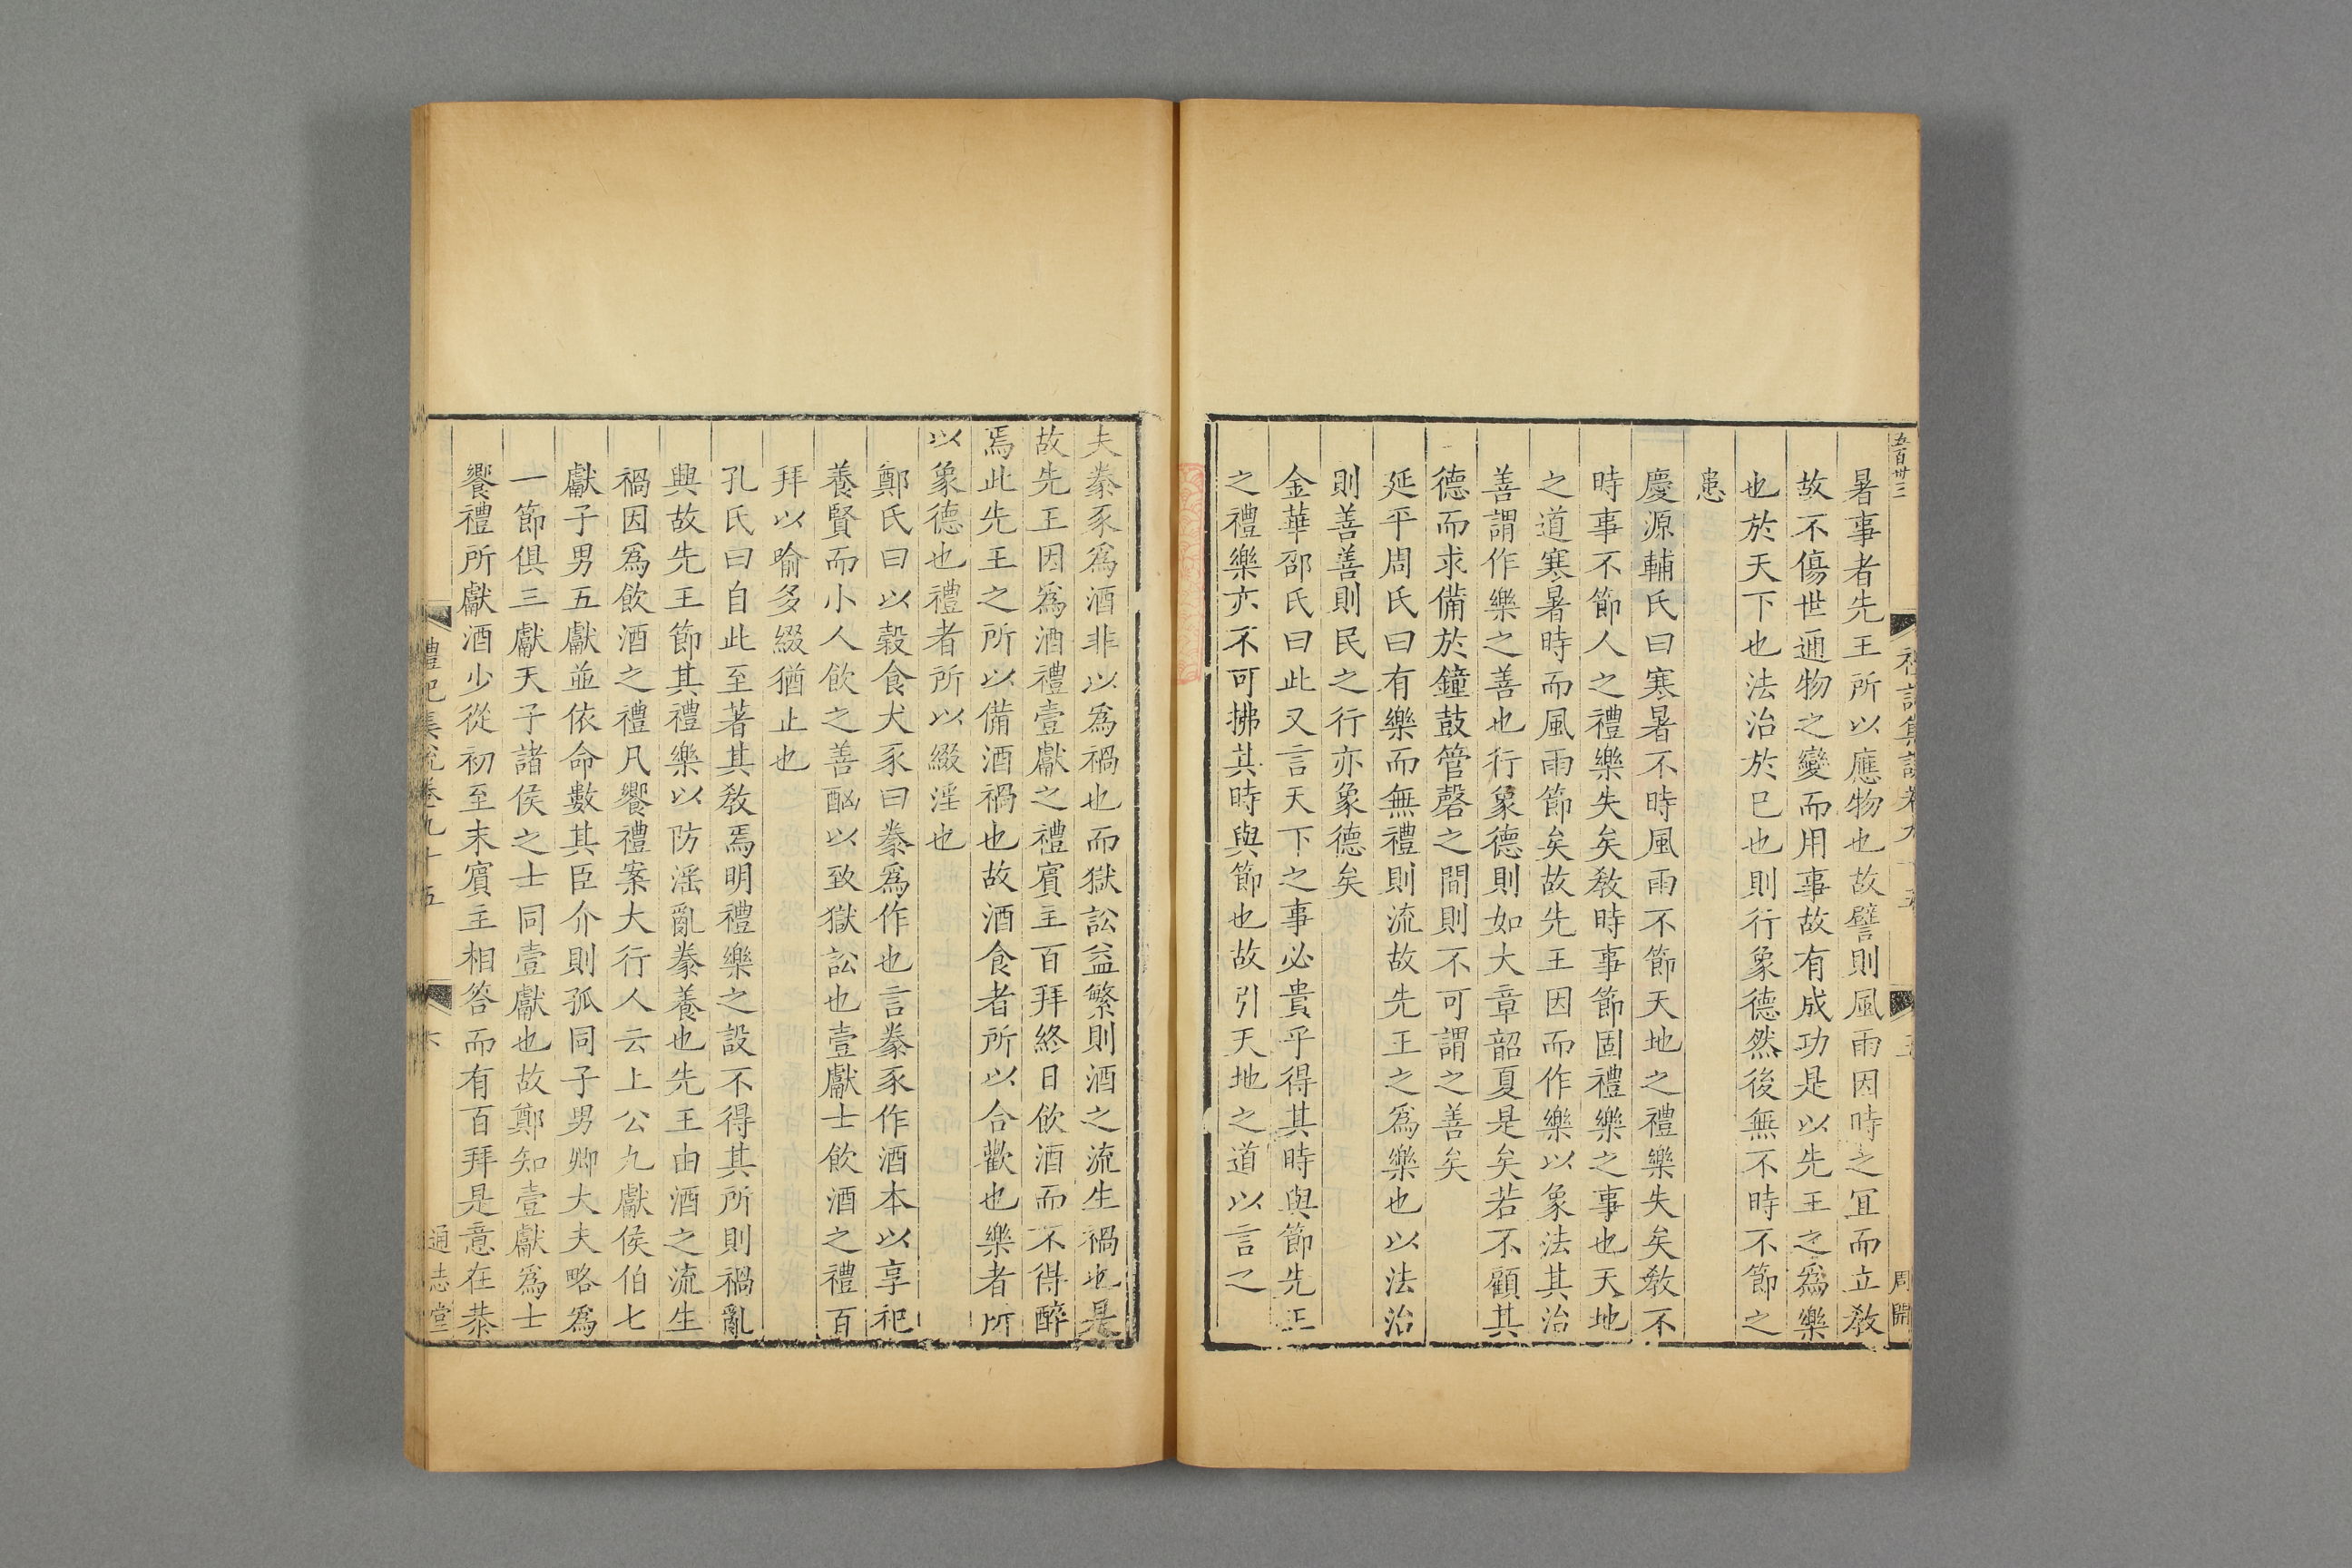 五百卅三
禮記集說卷九十五
五
周開
暑事者先王所以應物也故譬則風雨因時之宜而立教
故不傷世通物之變而用事故有成功是以先王之爲樂
也於天下也法治於已也則行象德然後無不時不節之
患
慶源輔氏曰寒暑不時風雨不節天地之禮樂失矣教不
時事不節人之禮樂失矣教時事節固禮樂之事也天地
之道寒暑時而風雨節矣故先王因而作樂以象法其治
善謂作樂之善也行象德則如大章韶夏是矣若不顧其
德而求備於鐘鼓管磬之間則不可謂之善矣
延平周氏曰有樂而無禮則流故先王之爲樂也以法治
則善善則民之行亦象德矣
金華邵氏曰此又言天下之事必貴乎得其時與節先王
之禮樂亦不可拂其時與節也故引天地之道以言之
夫豢豕爲酒非以爲禍也而獄訟益繁則酒之流生禍也是
故先王因爲酒禮壹獻之禮賓主百拜終日飲酒而不得醉
焉此先王之所以備酒禍也故酒食者所以合歡也樂者所
以象德也禮者所以綴淫也
鄭氏曰以穀食犬豕曰豢爲作也言豢豕作酒本以享祀
養賢而小人飲之善酗以致獄訟也壹獻士飲酒之禮百
拜以喻多綴猶止也
孔氏曰自此至著其教焉明禮樂之設不得其所則禍亂
興故先王節其禮樂以防淫亂豢養也先王由酒之流生
禍因爲飲酒之禮凡饗禮案大行人云上公九獻侯伯七
獻子男五獻並依命數其臣介則孤同子男卿大夫略爲
一節俱三獻天子諸侯之士同壹獻也故鄭知壹獻爲士
饗禮所獻酒少從初至末賓主相答而有百拜是意在恭
禮記集說卷九十五
六
通志堂